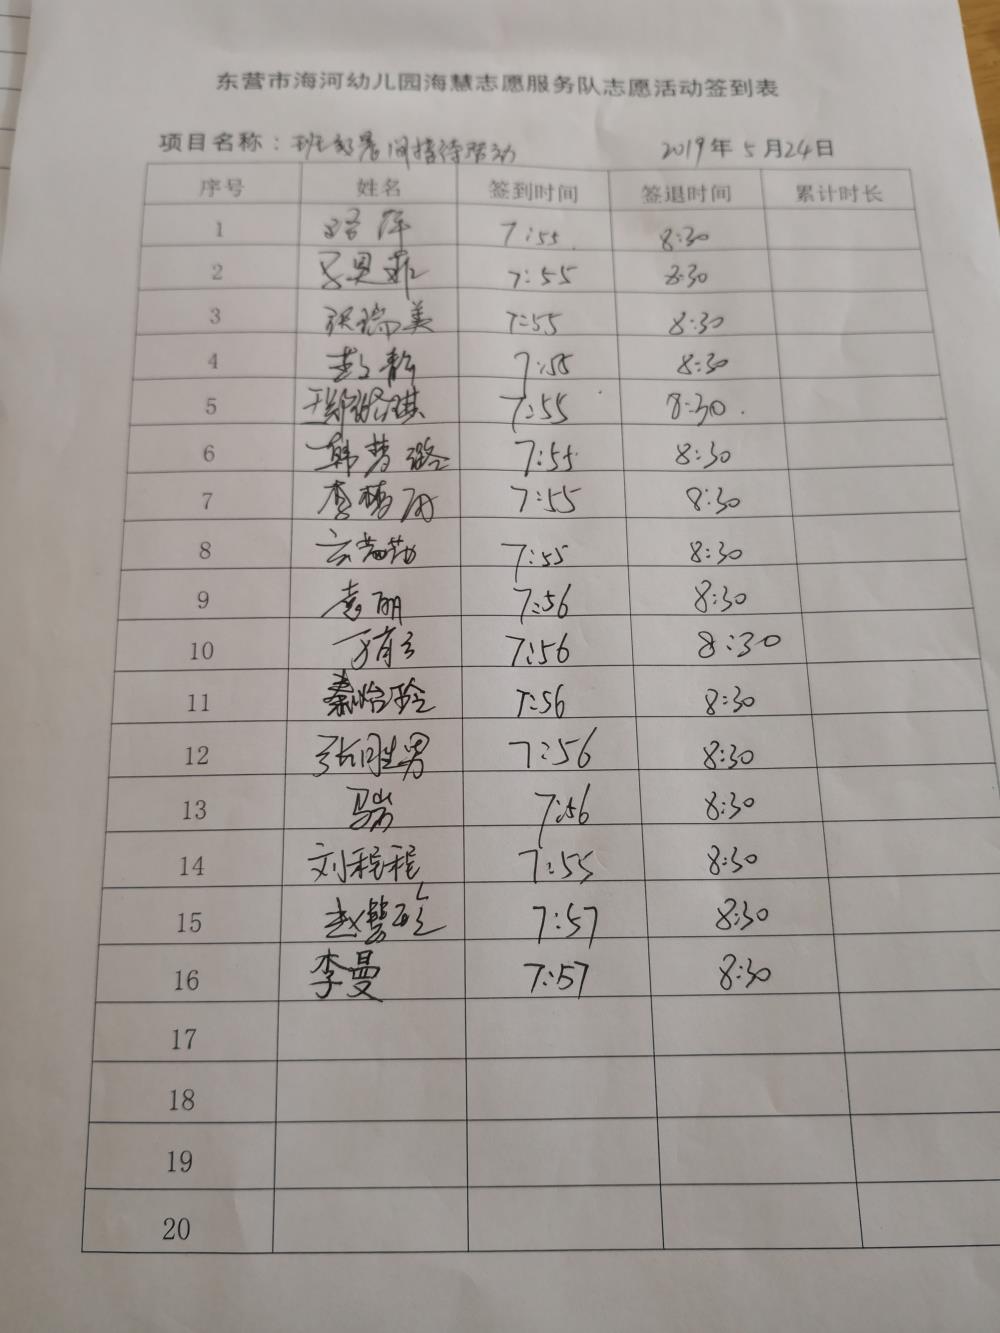 东营市海河幼儿园海慧志愿服务队志愿活动签到表
项目名称：班级晨间接待活动 2019年5月24日
序号 姓名 签到时间 签退时间 累计时长
1 7:55 8:30
2 7:55 8:30
3 张瑞美 7:55 8:30
4 彭静 7:55 8:30
5 7:55 8:30
6 韩梦璐 7:55 8:30
7 李梦月 7:55 8:30
8 7:55 8:30
9 袁丽 7:56 8:30
10 7:56 8:30
11 秦怡玲 7:56 8:30
12 张胜男 7:56 8:30
13 7:56 8:30
14 刘程程 7:55 8:30
15 7:57 8:30
16 李曼 7:57 8:30
17
18
19
20